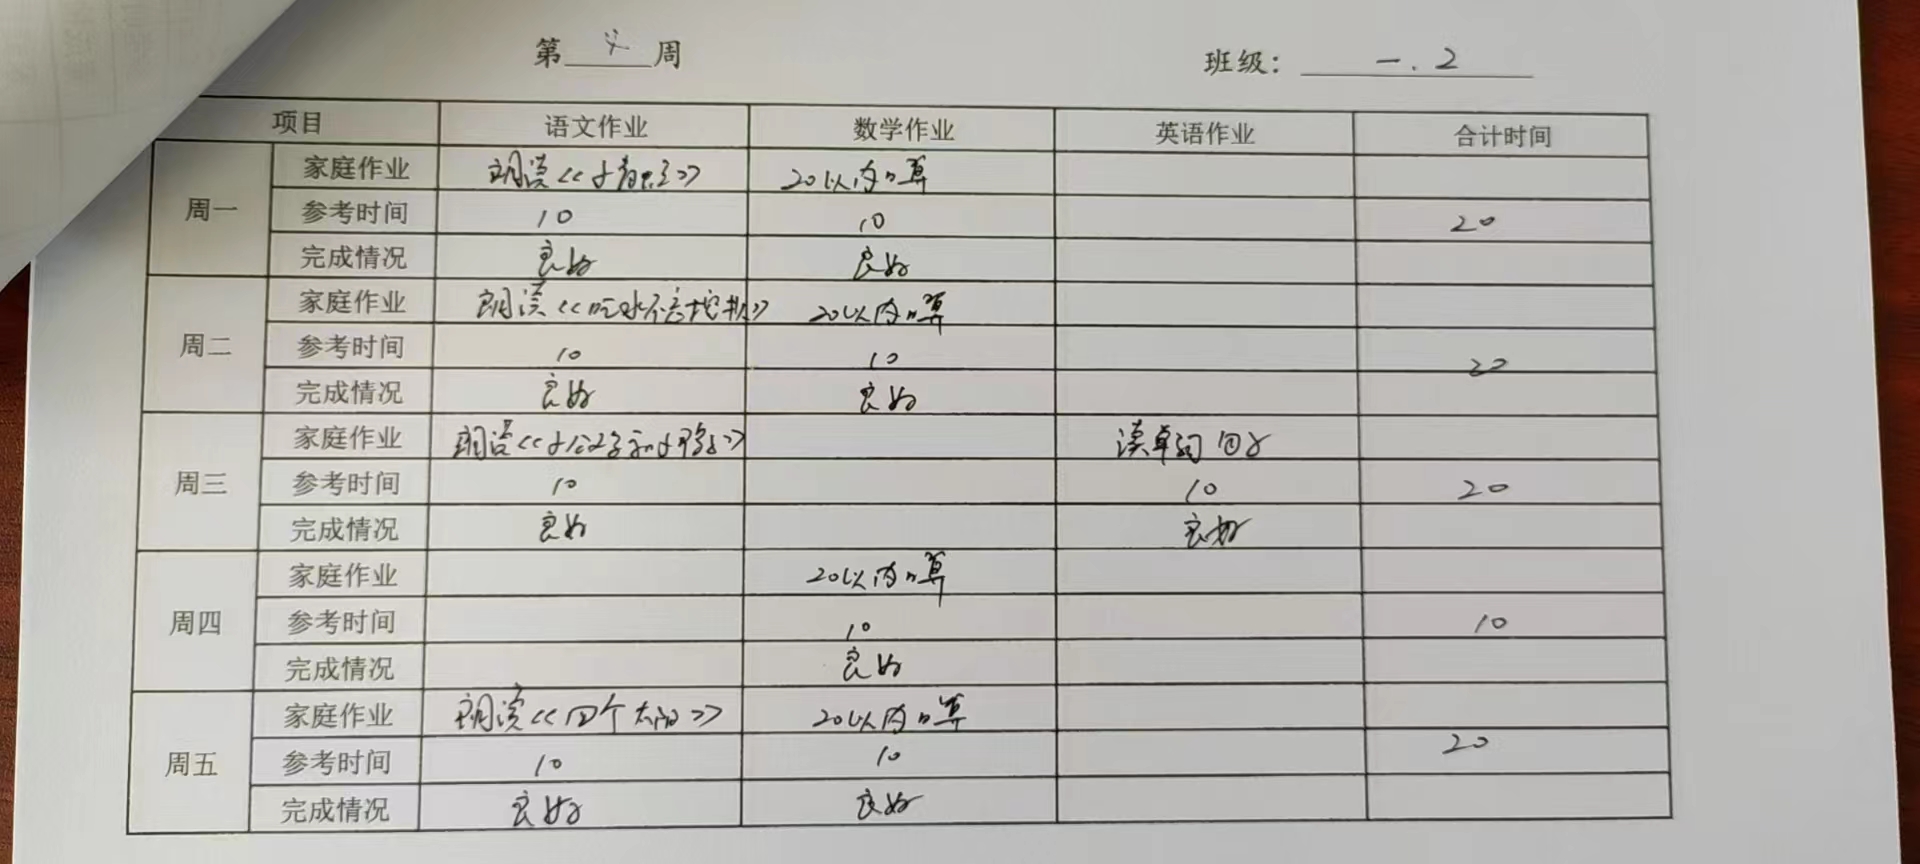 第 4 周 班级: 一.2
项目 语文作业 数学作业 英语作业 合计时间
周一 家庭作业 朗读《小青蛙》 20以内口算
参考时间 10 10 20
完成情况 良好 良好
周二 家庭作业 朗读《吃水不忘挖井人》 20以内口算
参考时间 10 10 20
完成情况 良好 良好
周三 家庭作业 朗读《小公鸡和小鸭子》 读单词
参考时间 10 10 20
完成情况 良好 良好
周四 家庭作业 20以内口算
参考时间 10 10
完成情况 良好
周五 家庭作业 朗读《四个太阳》 20以内口算
参考时间 10 10 20
完成情况 良好 良好